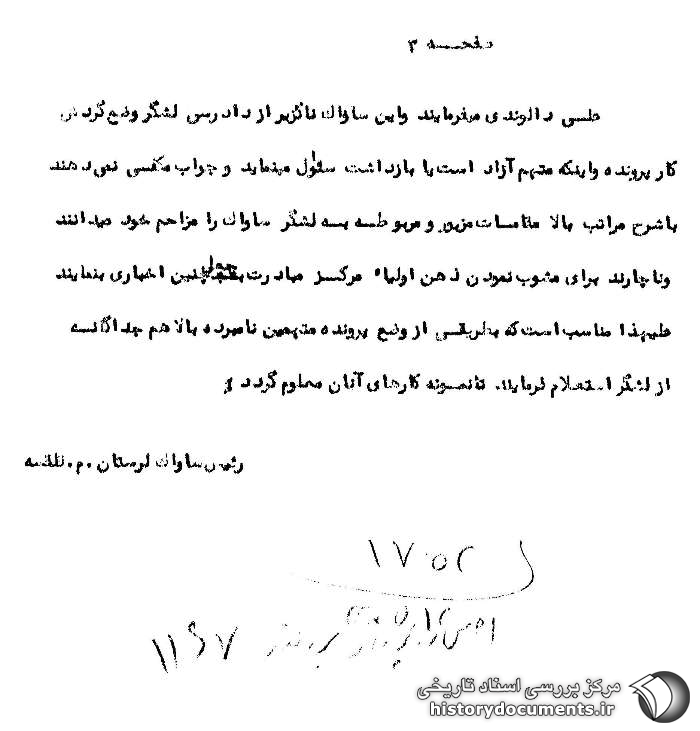 صفحـــه ۳
طبسی دالوندی میفرمایند واین ساواك ناگزیر از دادرسی لشگر وضع گردش
کار پرونده واینکه متهم آزاد است یا بازداشت سئوال مینماید و جواب مکفی نمی دهند
باشرح مراتب بالا مقامات مزبور و مربوطـه بـه لشگر ساواك را مزاحم خود میدانند
وناچارند برای مشوب نمودن ذهن اولیاء مرکـز مبادرت بجعل چنین اخباری بنمایند
علیهذا مناسب است که بطریقـی از وضع پرونده متهمین نامبرده بالا هم جداگانـه
از لشگر استعلام فرمایند. تا نمونه کارهای آنان معلوم گردد
رئیس ساواك لرستان .م.
۱۷۰۵۲
۱۱۶۷
مرکز بررسی اسناد تاریخی
historydocuments.ir